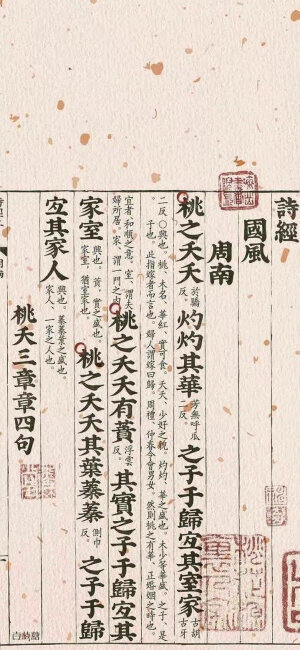 詩經
國風
周南
桃之夭夭於驕反。灼灼其華芳無呼瓜二反。之子于歸宜其室家古胡古牙
二反。○興也。桃、木名、華紅、實可食。夭夭、少好之貌。灼灼、華之盛也。木少則華盛。之子、是
子也。此指嫁者而言也。婦人謂嫁曰歸。周禮、仲春令會男女。然則桃之有華、正婚姻之時也。
宜者、和順之意。室、謂夫
婦所居。家、謂一門之內。桃之夭夭有蕡浮雲反。其實之子于歸宜其
家室興也。蕡、實之盛也。家室、猶室家也。桃之夭夭其葉蓁蓁側巾反。之子于歸
宜其家人興也。蓁蓁葉之盛也。家人、一家之人也。
桃夭三章章四句